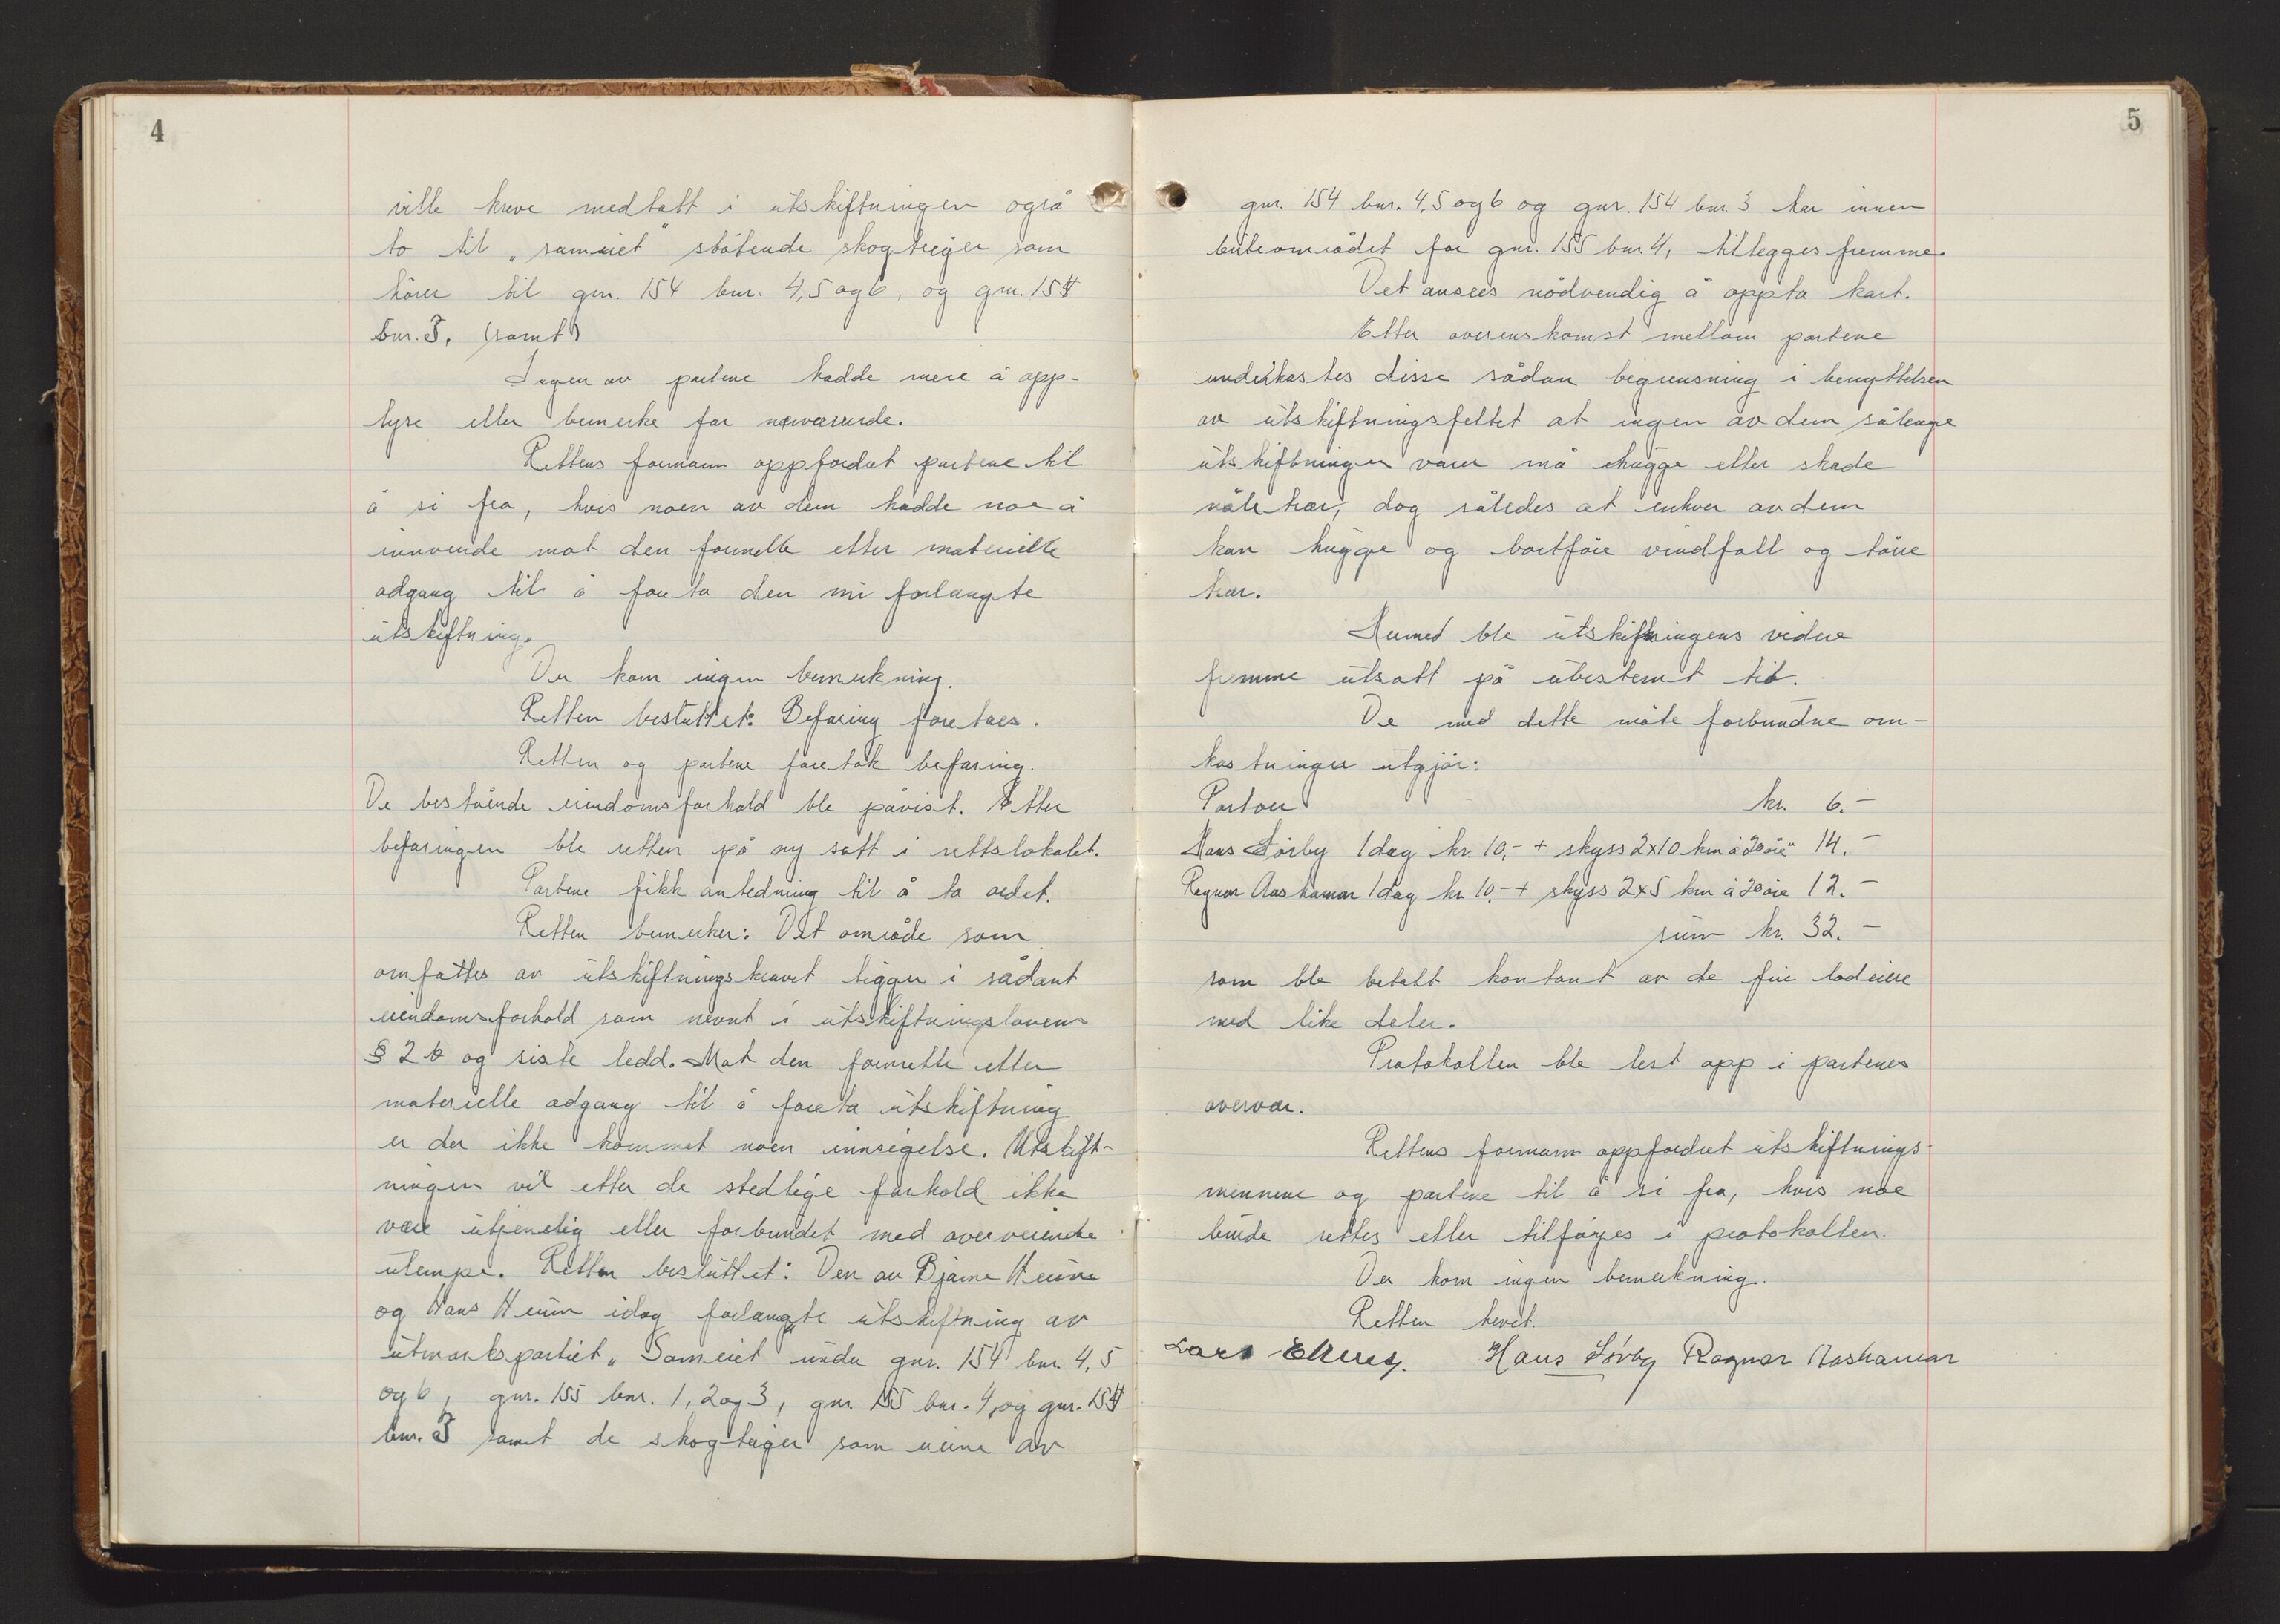 4
ville kreve medtatt i utskiftningen også
to til „sameiet" støtende skogteiger som
hører til gnr. 154 bnr. 4,5 og 6, og gnr. 154
bnr. 3. (samt)
Ingen av partene hadde mere å opp-
lyse eller bemerke for nærværende.
Rettens formann oppfordret partene til
å si fra, hvis noen av dem hadde noe å
innvende mot den formelle eller materielle
adgang til å foreta den nu forlangte
utskiftning.
Der kom ingen bemerkning.
Retten besluttet: Befaring foretaes.
Retten og partene foretok befaring.
De bestående eiendomsforhold ble påvist. Etter
befaringen ble retten på ny satt i rettslokalet.
Partene fikk anledning til å ta ordet.
Retten bemerker: Det område som
omfattes av utskiftningskravet ligger i sådant
eiendomsforhold som nevnt i utskiftningslovens
§ 2 b og siste ledd. Mot den formelle eller
materielle adgang til å foreta utskiftning
er der ikke kommet noen innsigelse. Utskift-
ningen vil etter de stedlige forhold ikke
være utjenelig eller forbundet med overveiende
ulempe. Retten besluttet: Den av Bjarne Heum
og Hans Heum idag forlangte utskiftning av
utmarkspartiet „Sameiet" under gnr. 154 bnr. 4,5
og 6, gnr. 155 bnr. 1, 2 og 3, gnr. 155 bnr. 4, og gnr. 154
bnr. 3 samt de skogteiger som eierne av
5
gnr. 154 bnr. 4,5 og 6 og gnr. 154 bnr. 3 har innen
beiteområdet for gnr. 155 bnr 4, tillegges fremme.
Det ansees nødvendig å oppta kart.
Etter overenskomst mellom partene
underkastes disse sådan begrensning i benyttelsen
av utskiftningsfeltet at ingen av dem sålenge
utskiftningen varer må hugge eller skade
nåletrær, dog således at enhver av dem
kan hugge og bortføre vindfall og tørre
trær.
Hermed ble utskiftningens videre
fremme utsatt på ubestemt tid.
De med dette møte forbundne om-
kostninger utgjør:
Portoer kr. 6.-
Hans Sørby 1 dag kr. 10,- + skyss 2x10 km à 20 øre 14.-
Ragnar Aaskamar 1 dag kr 10.- + skyss 2x5 km à 20 øre 12.-
sum kr. 32.-
som ble betalt kontant av de fire lodeiere
med like deler.
Protokollen ble lest opp i partenes
overvær.
Rettens formann oppfordret utskiftnings-
mennene og partene til å si fra, hvis noe
burde rettes eller tilføyes i protokollen.
Der kom ingen bemerkning.
Retten hevet.
Lars Hans Sørby Ragnar Aaskamar